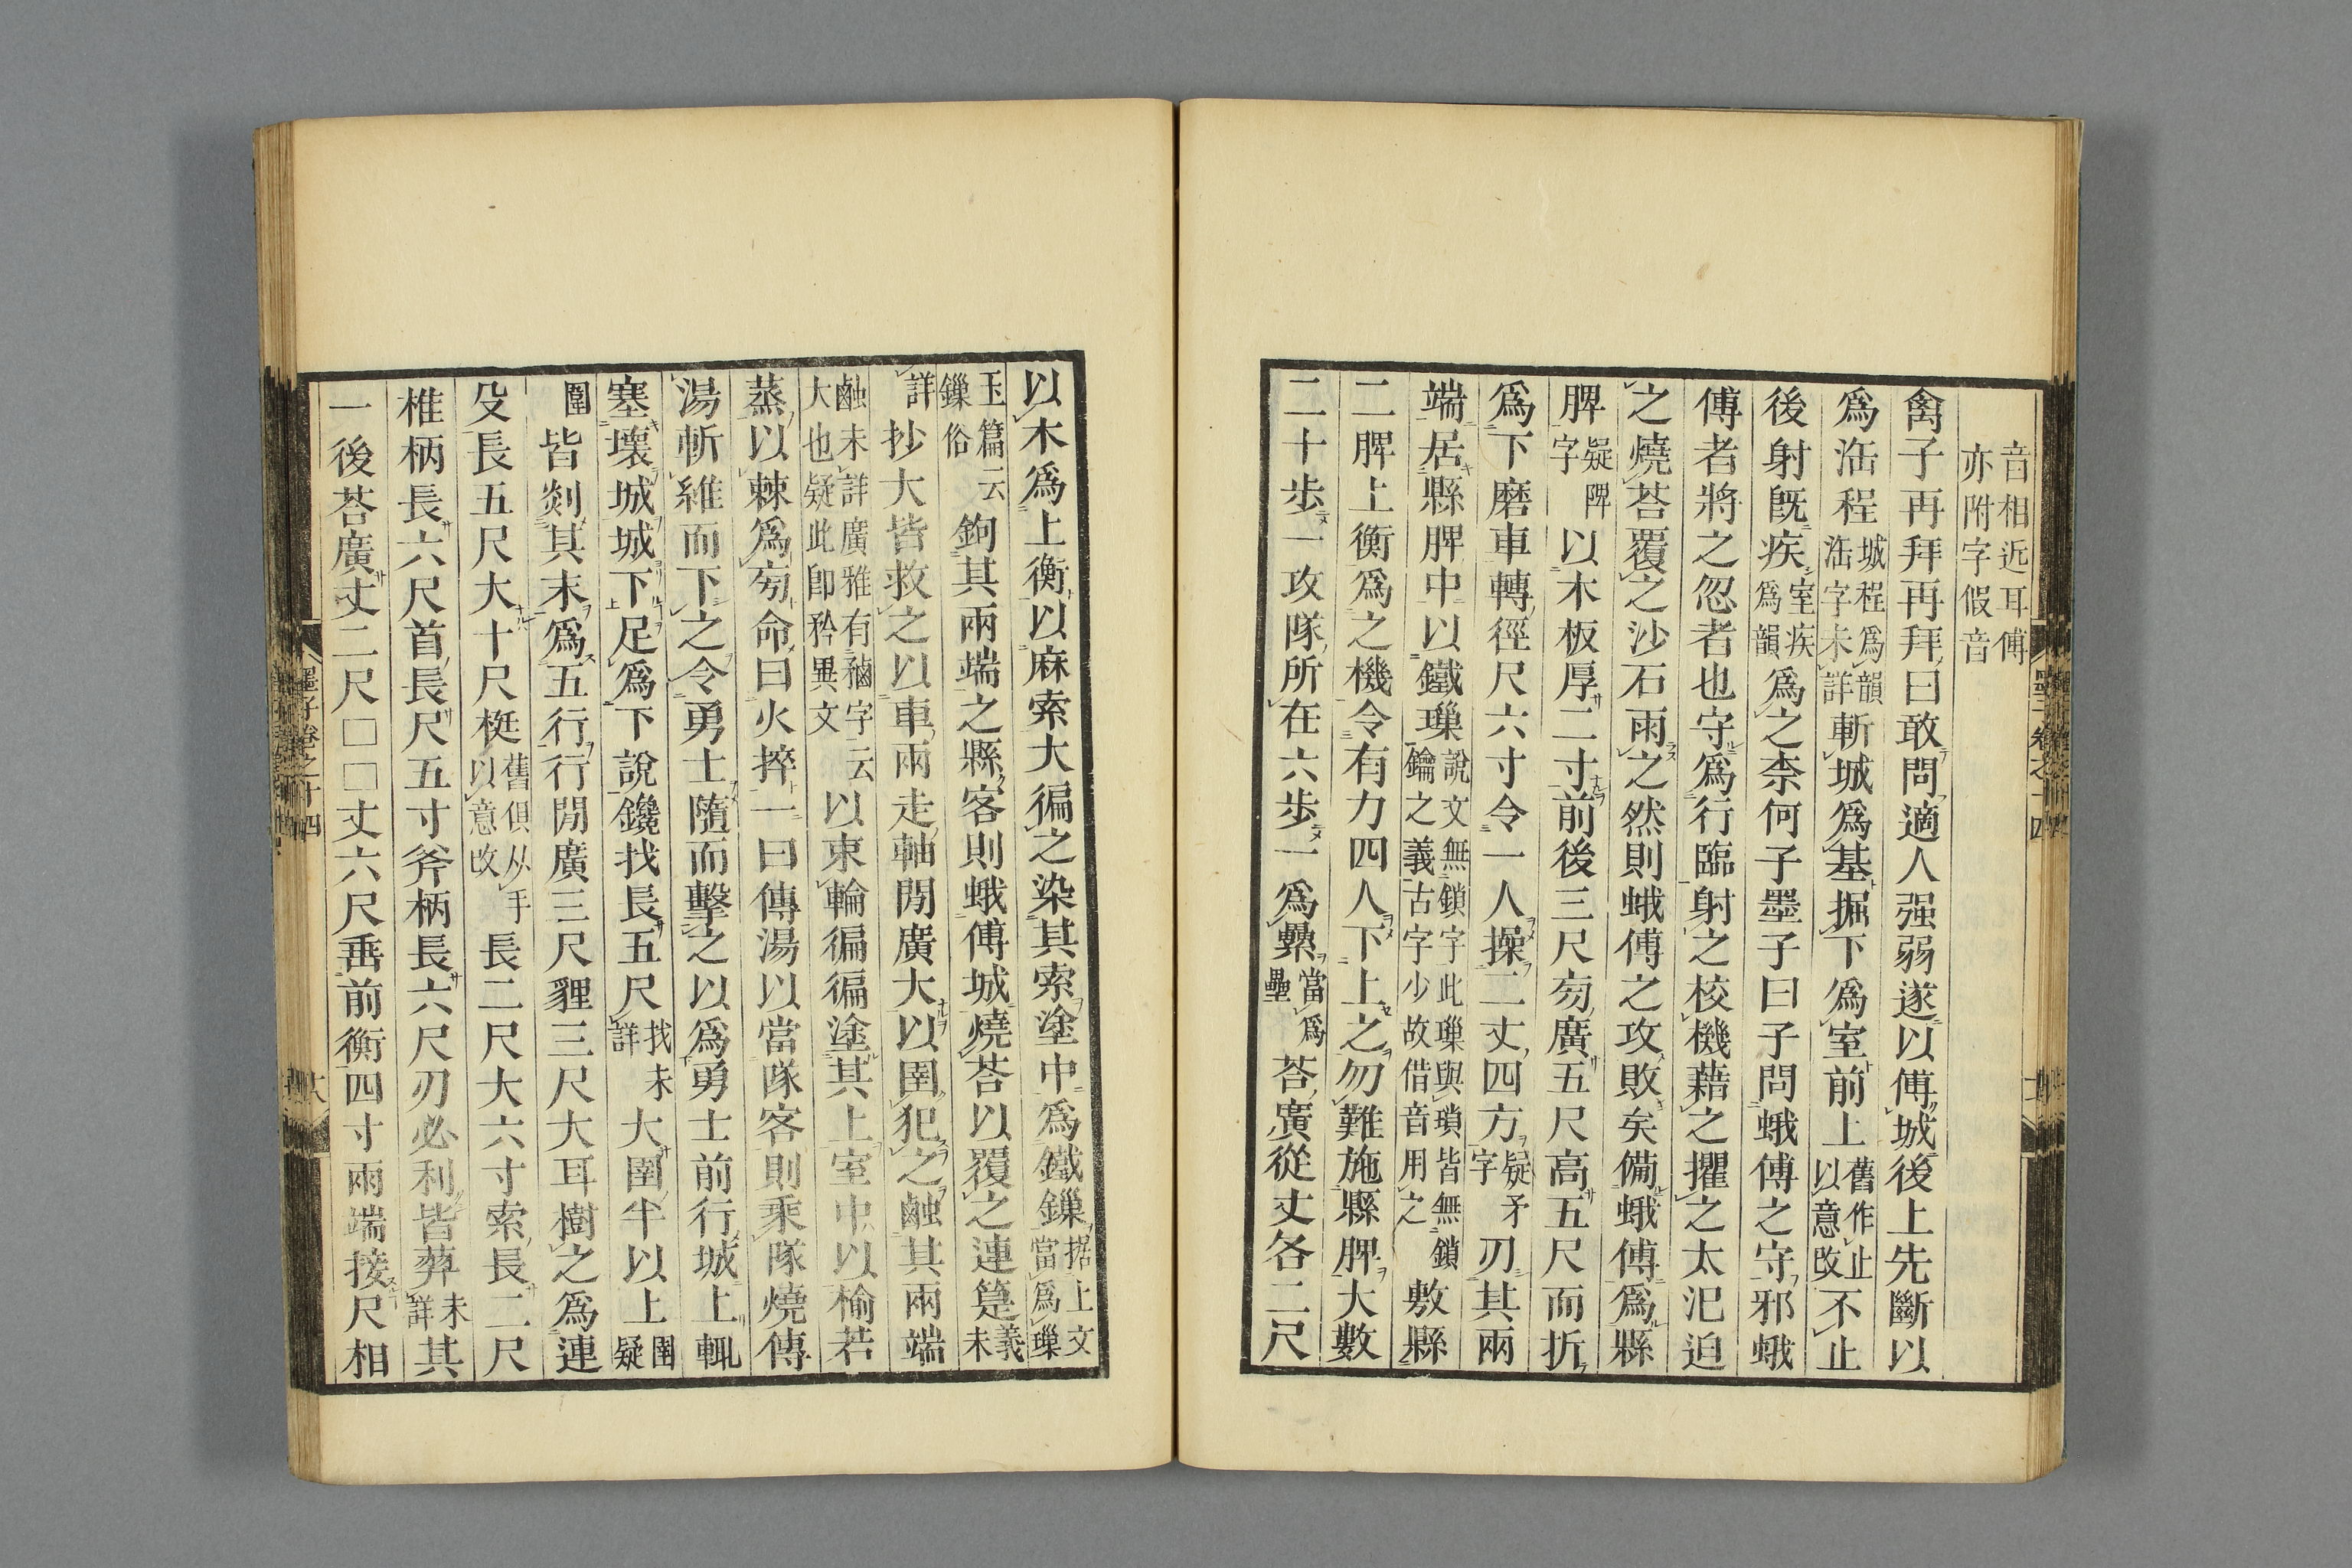 音相近耳傅
亦附字假音
禽子再拜再拜曰敢問適人强弱遂以傅城後上先斷以
爲程城程爲韻字未詳斬城爲基掘下爲室前上舊作止以意改不止
後射旣疾室疾爲韻爲之柰何子墨子曰子問蛾傅之守邪蛾
傅者將之忽者也守爲行臨射之校機藉之擢之太氾迫
之燒荅覆之沙石雨之然則蛾傅之攻敗矣備蛾傅爲縣
脾疑陴字以木板厚二寸前後三尺旁廣五尺高五尺而折
爲下磨車轉徑尺六寸令一人操二丈四方疑矛字刃其兩
端居縣脾中以鐵璅說文無鎖字此璅與瑣皆無鎖鑰之義古字少故借音用之敷縣
二脾上衡爲之機令有力四人下上之勿難施縣脾大數
二十步一攻隊所在六步一爲纍當爲壘荅廣從丈各二尺
以木爲上衡以麻索大徧之染其索塗中爲鐵鏁据上文當爲璅
玉篇云鏁俗鉤其兩端之縣客則蛾傅城燒荅以覆之連筳義未
詳抄大皆救之以車兩走軸閒廣大以圉犯之䶥其兩端
䶥未詳廣雅有䅵字云大也疑此卽矜異文以束輪徧徧塗其上室中以榆若
蒸以棘爲旁命曰火捽一曰傳湯以當隊客則乘隊燒傳
湯斬維而下之令勇士隨而擊之以爲勇士前行城上輒
塞壞城城下足爲下說鑱找長五尺找未詳大圉半以上圉疑
圍皆剡其末爲五行行閒廣三尺貍三尺大耳樹之爲連
殳長五尺大十尺梃舊俱从手以意改長二尺大六寸索長二尺
椎柄長六尺首長尺五寸斧柄長六尺刃必利皆葬未詳其
一後荅廣丈二尺□□丈六尺垂前衡四寸兩端接尺相
墨子卷之十四